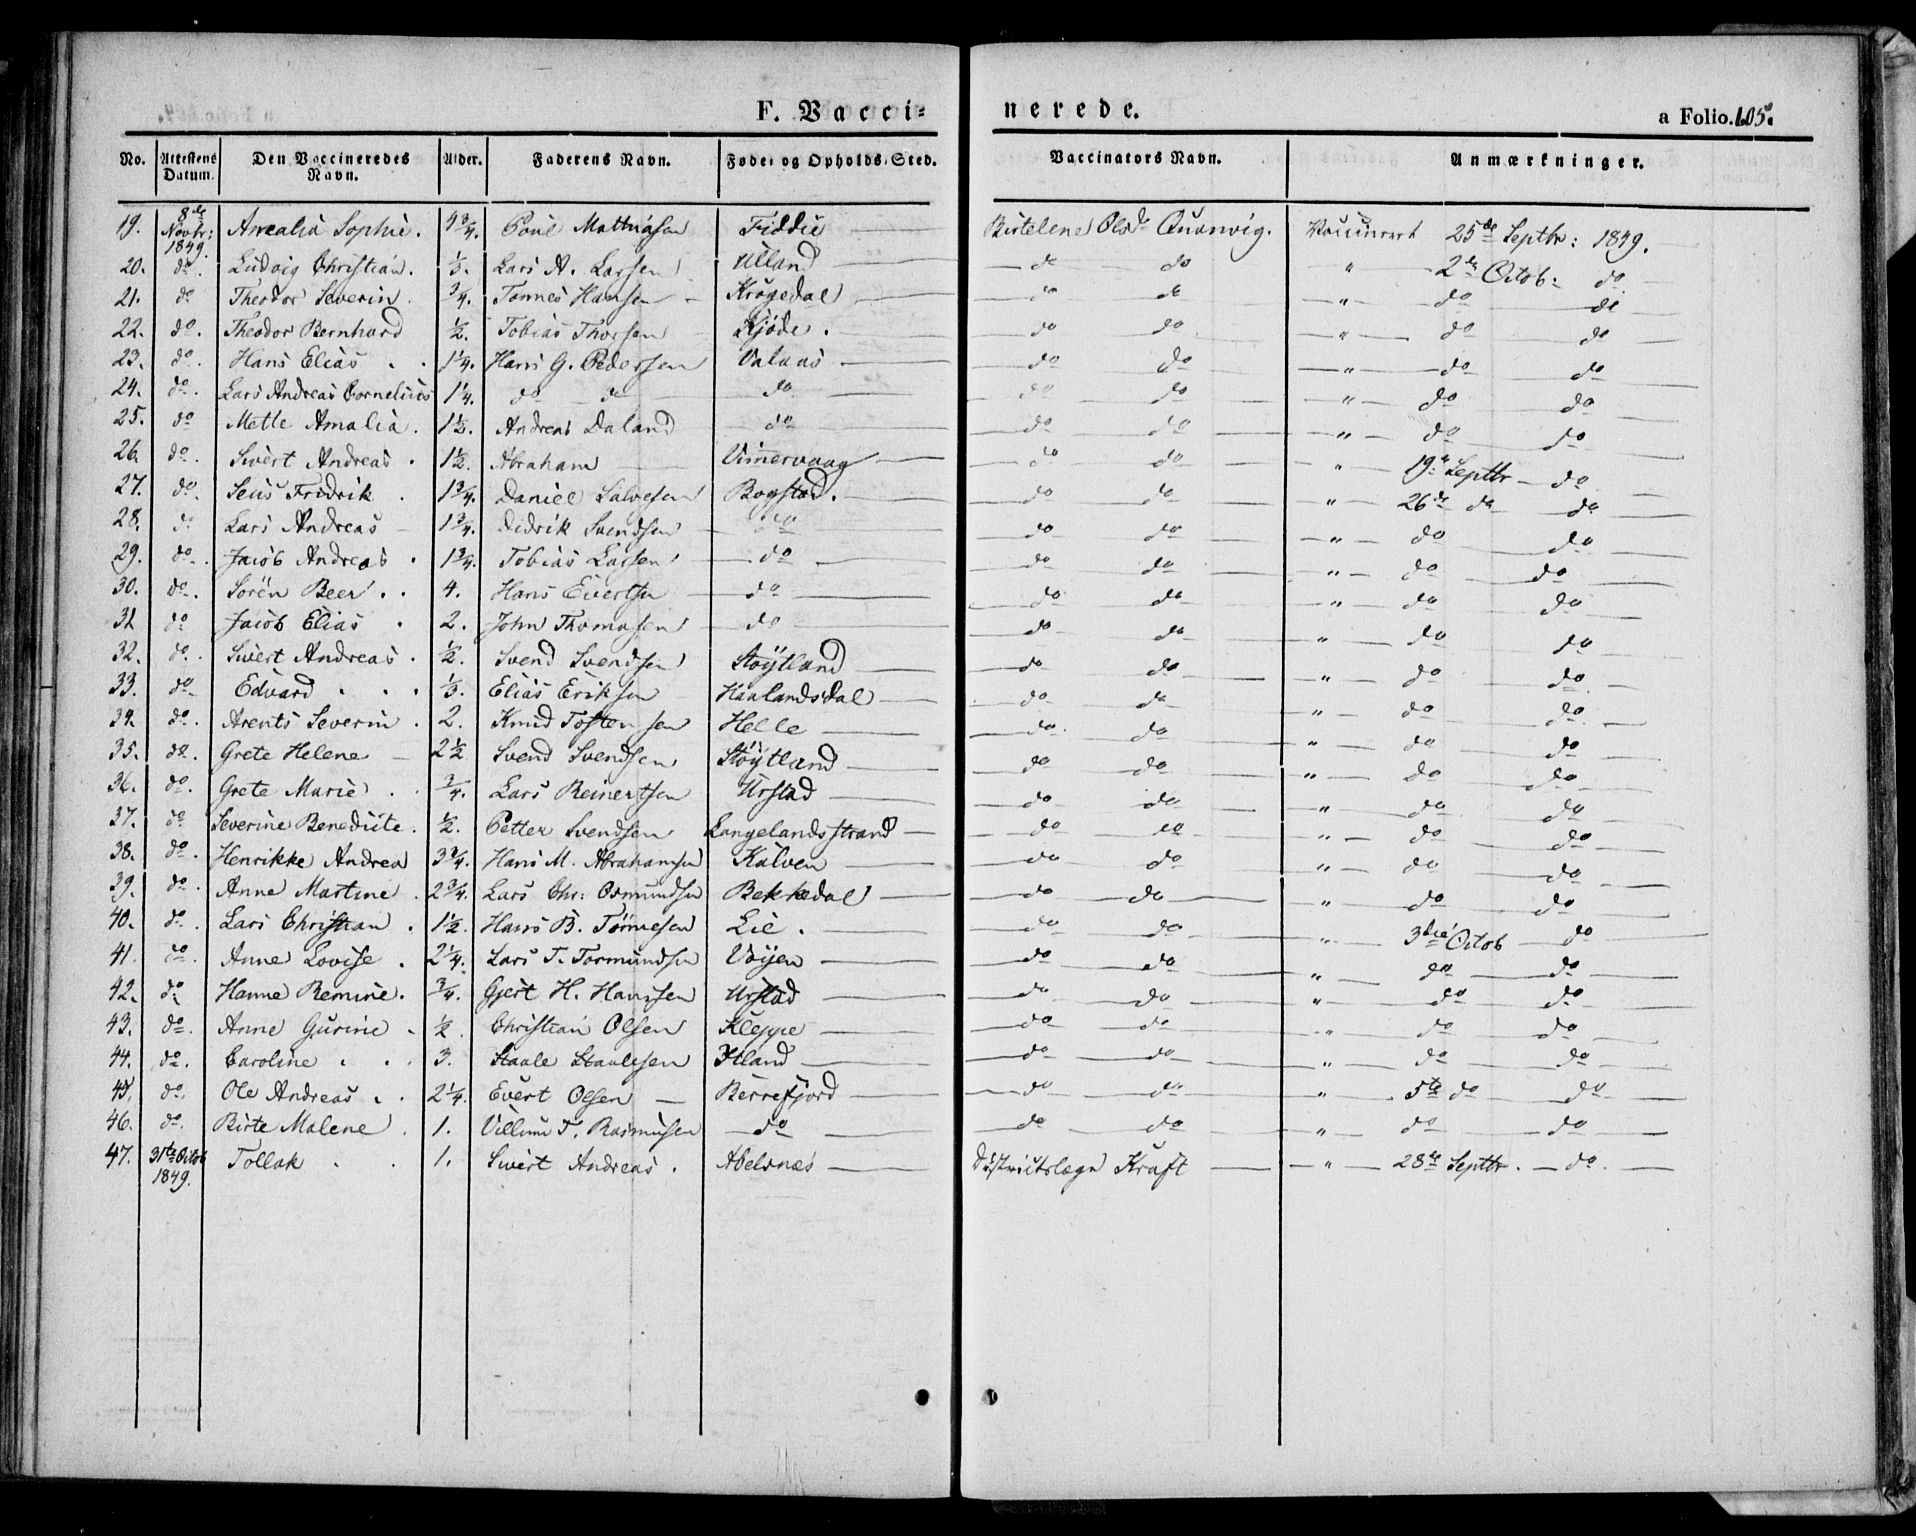 F. Vacci=
nerede.
a Folio. 605.
No. Attestens Datum. Den Vaccineredes Navn. Alder. Faderens Navn. Føde- og Opholds-Sted. Vaccinators Navn. Anmærkninger.
19. 8de Novbr: 1849. Amalia Sophie. 4¾. Poul Mathiasen Fiddie Birtelene Olsd Quanvig. Vaccineret 25de Septbr: 1849.
20. do. Ludvig Christian. ⅓. Lars A. Larsen Ulland do do " 2de Octob: do
21. do Theodor Severin. ¾. Tonnes Hansen Krogedal do do " do do
22. do. Theodor Bernhard ½. Tobias Thorsen Kjøde. do do " do do
23. do. Hans Elias 1¼. Hans G. Pedersen Valaas do do " do do
24. do. Lars Andreas Cornelius 1¼. do do do do do " do do
25. do Mette Amalia. 1½. Andreas Daland do do do " do do
26. do. Sivert Andreas. 1½. Abraham Vimervaag do do " 19de Septbr do
27. do. Seus Fridrik 1¾. Daniel Salvesen Bogstad. do do " 26de do do
28. do Lars Andreas 1¾. Didrik Svendsen do do do " do do
29. do. Jacob Andreas. 1¾. Tobias Larsen do do do " do do
30. do. Sørēn Beer. 4. Hans Evertsen do do do " do do
31 do Jacob Elias. 2. John Thomasen do do do " do do
32. do. Sivert Andreas. ½. Svend Svendsen Støÿtland do do " do do
33. do Edvard ⅓. Elias Eriksen Haalandsdal do do " do do
34. do. Arents Severin. 2. Knud Tostensen Helle do do " do do
35. do. Grete Helene 2½ Svend Svendsen Støÿtland do do " do do
36. do. Grete Marie ¾. Lars Reinertsen Urstad do do " do do
37. do Severine Benedicte. ½. Petter Svendsen Langelandsstrand do do " do do
38. do. Henrikke Andrea 3¾. Hans M. Abrahamsen Kalven do do " do do
39. do. Anne Martine. 2¾. Lars Chr: Osmundsen Bekkedal do do " do do
40. do. Lars Christian. 1½. Hans B. Tönnesen Lie. do do " 3die Octob do
41. do. Anne Lovise. 2¼. Lars T. Tormundsen Vöÿen do do " do do
42. do. Hanne Remine. ¾. Gjert H. Hansen Urstad do do " do do
43. do. Anne Gurine. ½. Christian Olsen Kleppe do do " do do
44. do. Caroline 3. Staale Staalesen Itland do do " do do
45. do. Ole Andreas. 2¼. Evert Olsen Berrefjord do do " 5te do do
46. do. Birte Malene. 1. Villum T. Rasmusen do do do " do do
47. 31te Octob 1849. Tollak 1. Sivert Andreas. Abelsnæs Districtslæge Kraft " 28de Septbr. do.